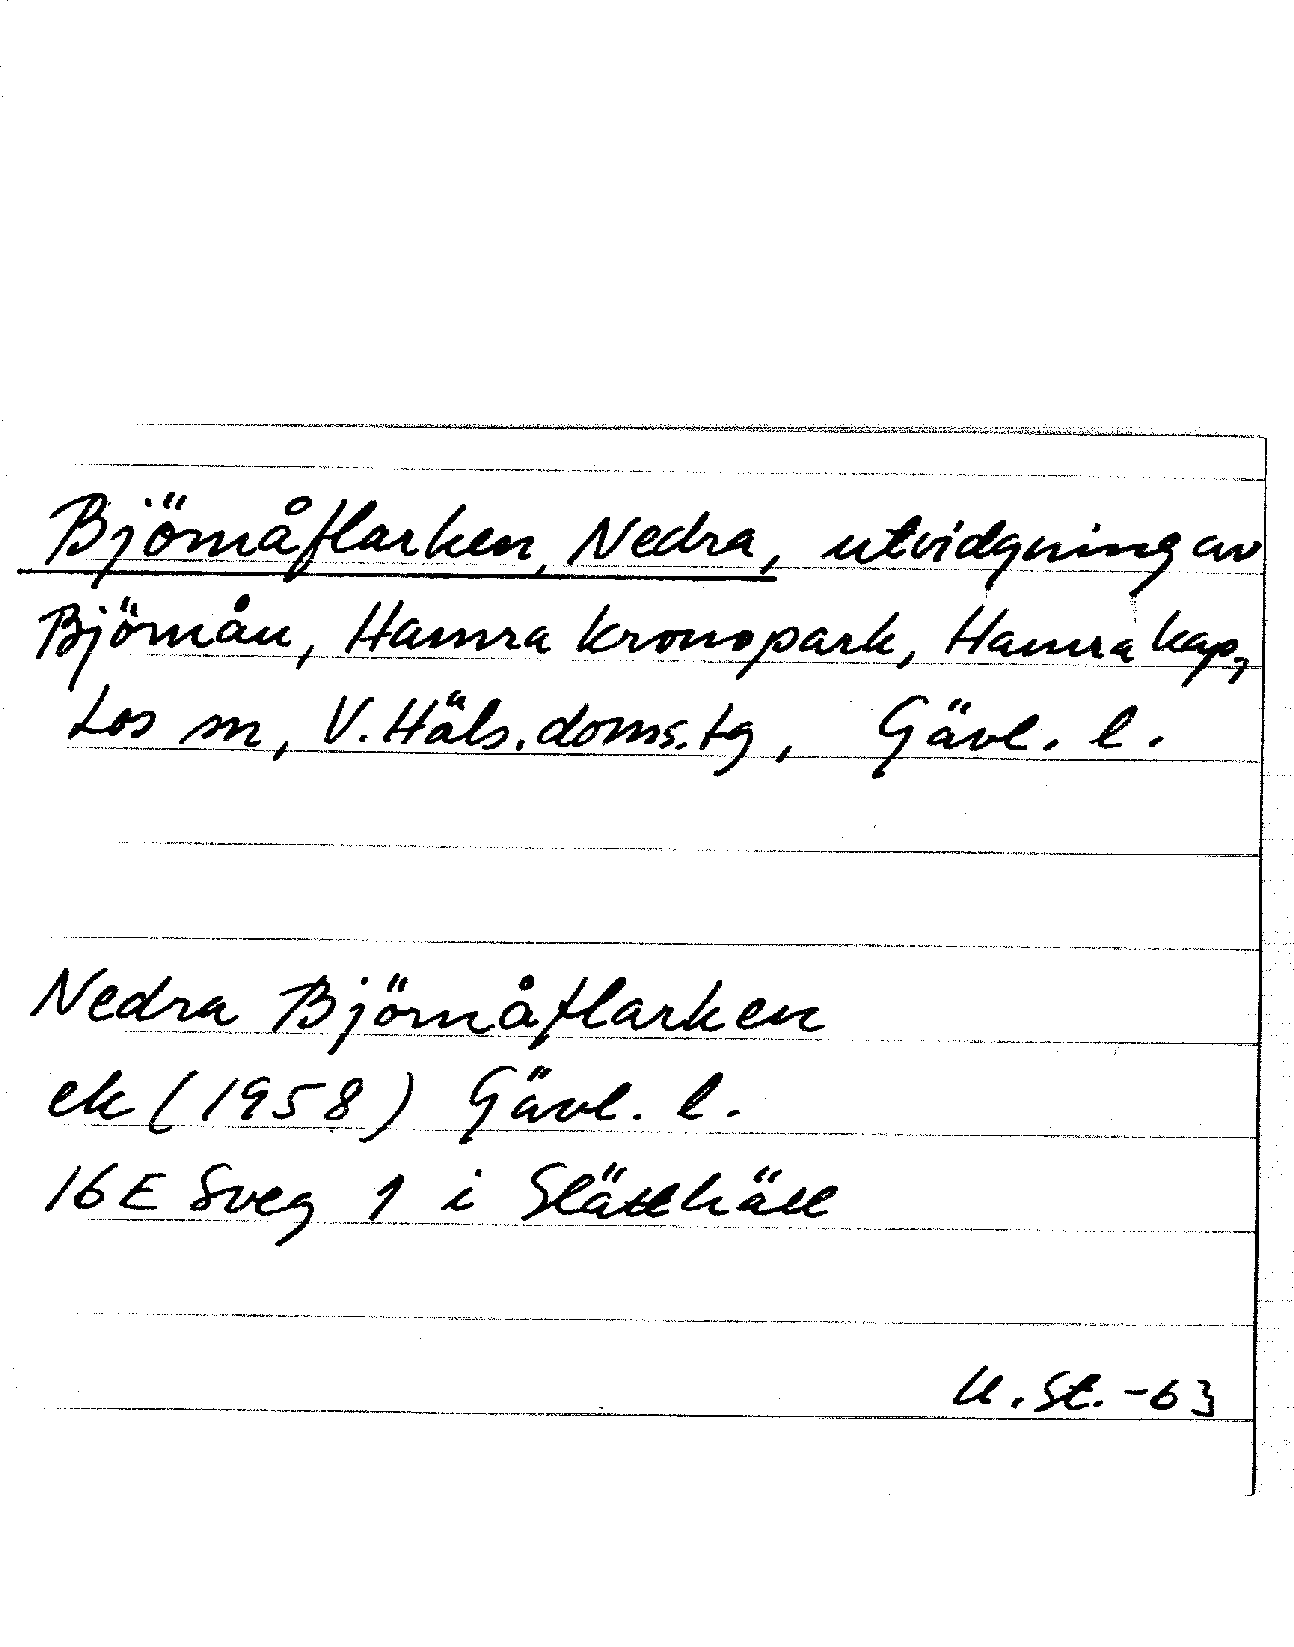 Björnåflarken, Nedra, utvidgning av
Björnån, Hamra kronopark, Hamra kap,
Los sn, V. Häls. doms. tg, Gävl. l.
Nedra Björnåflarken
ek (1958) Gävl. l.
16 E Sveg 1 i Slätthäll
U. St. -63